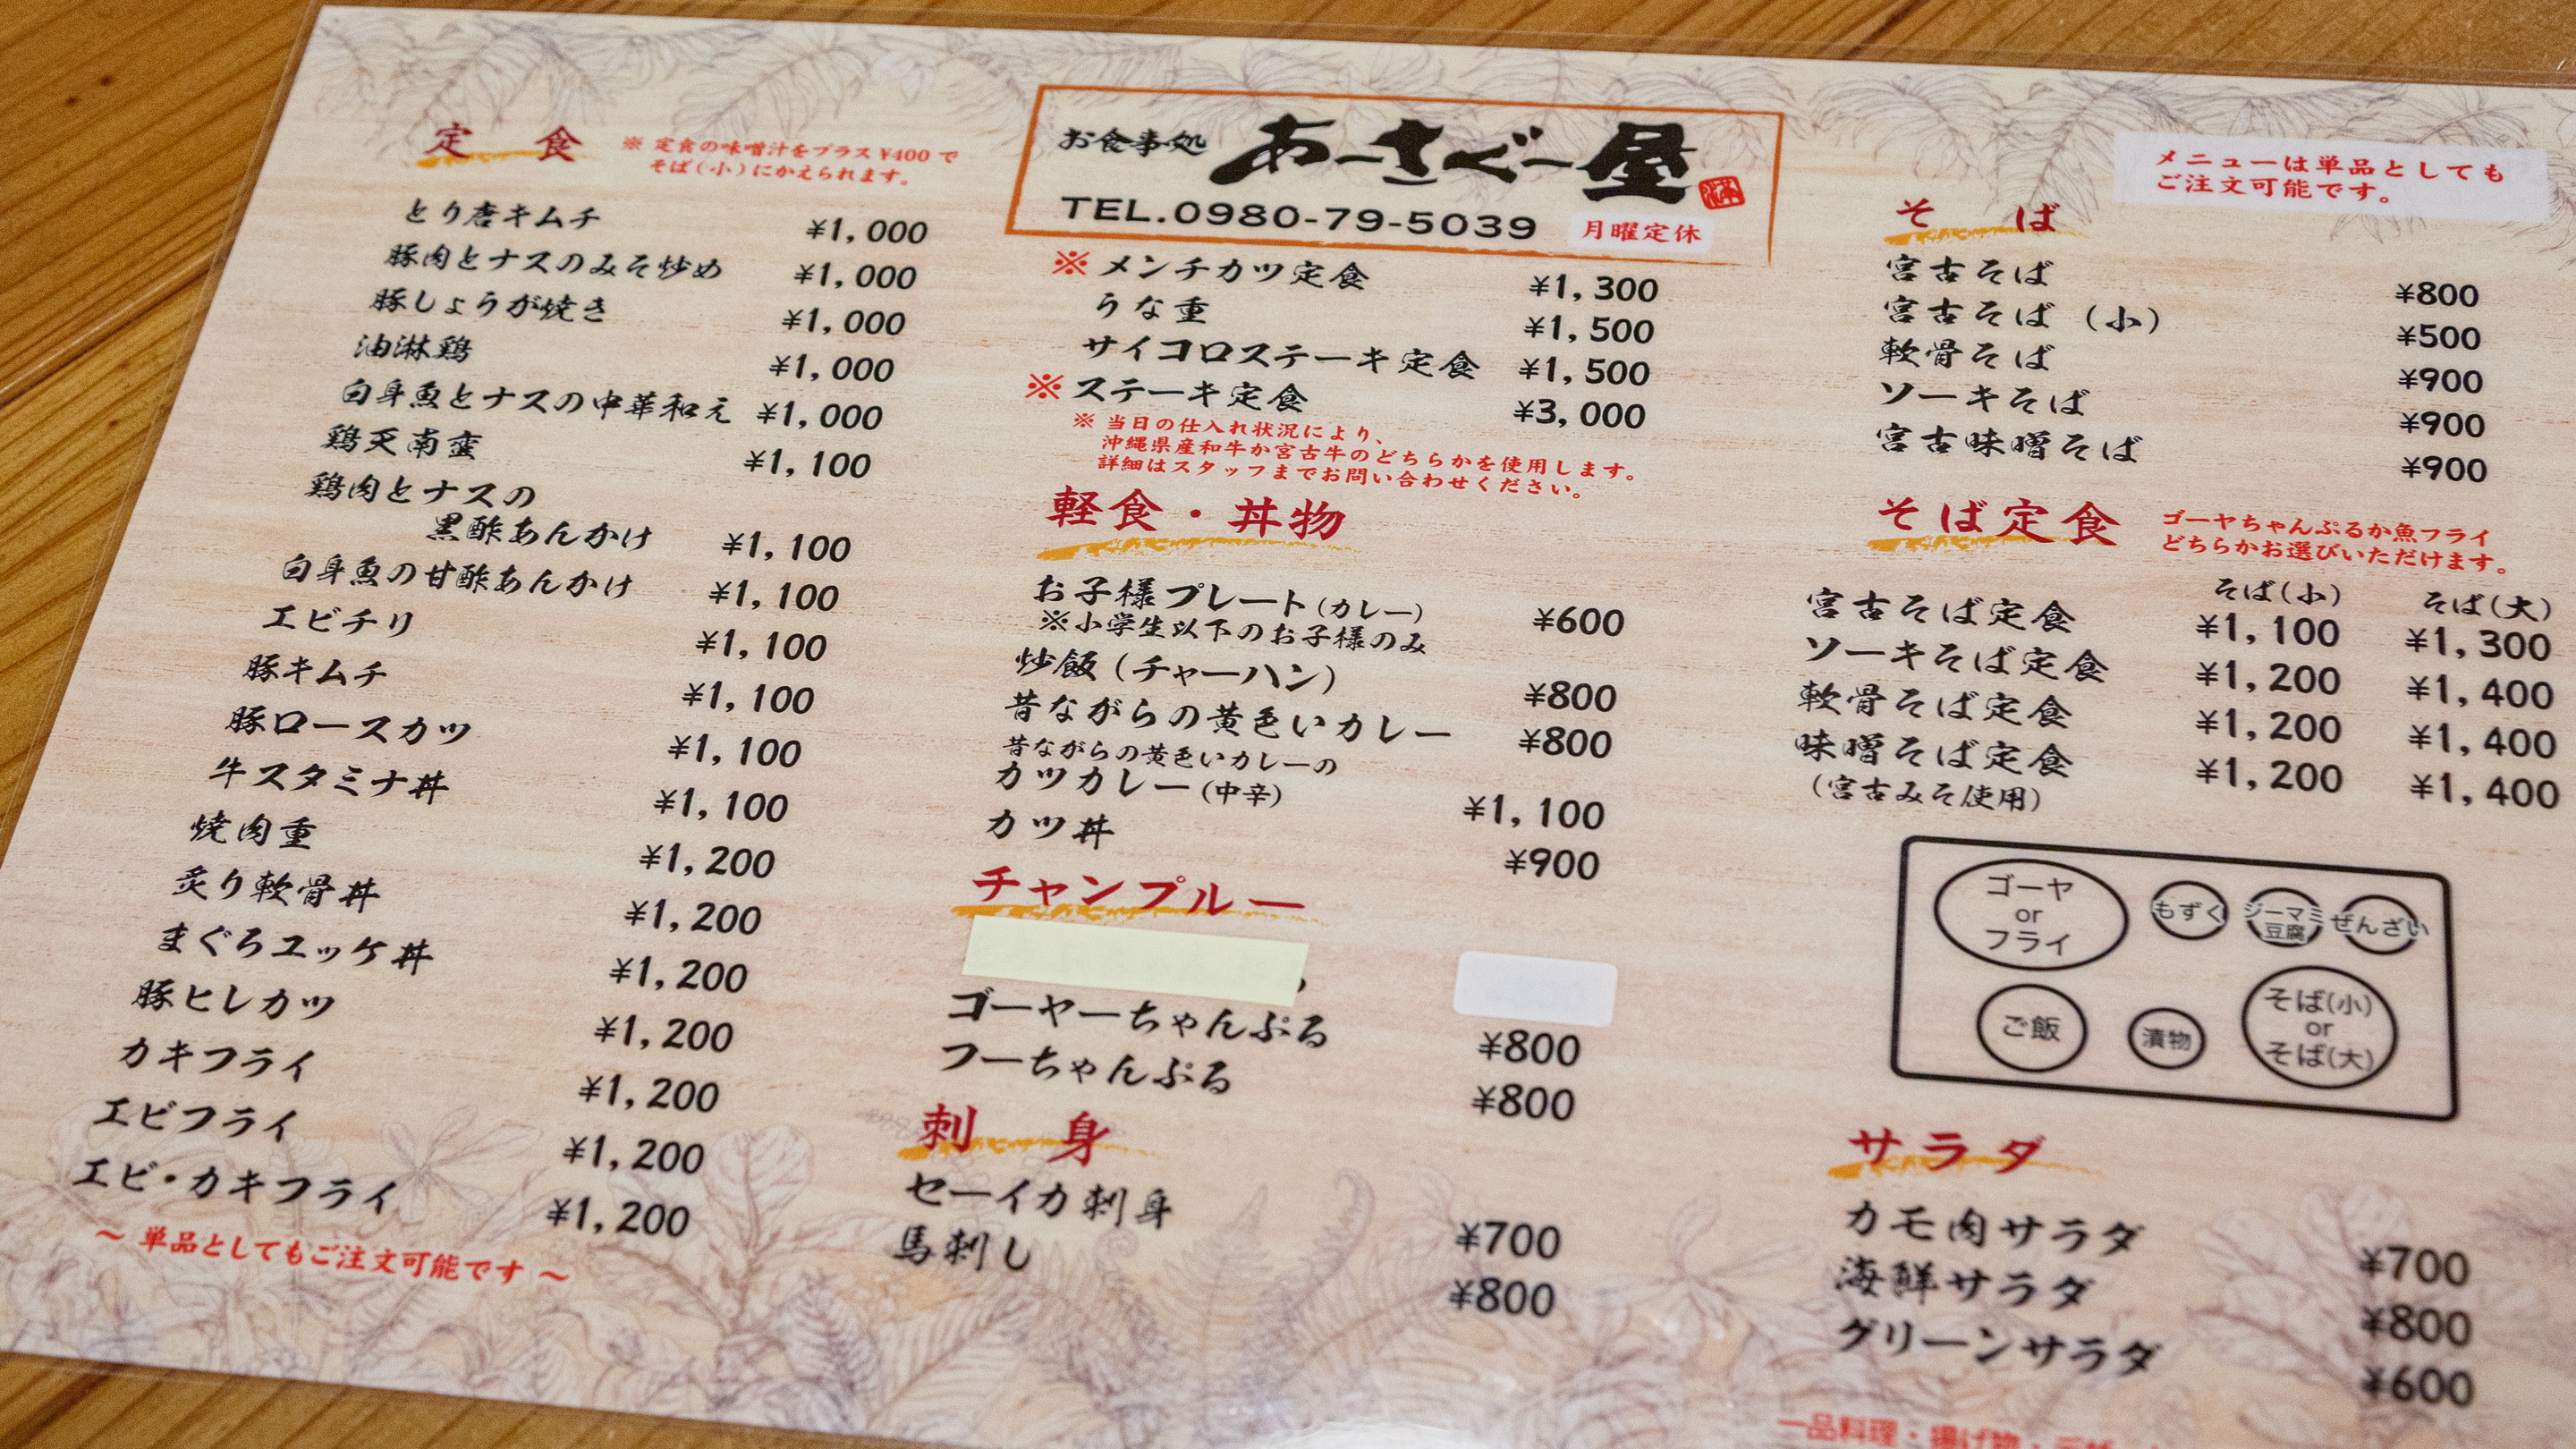 定　食
※ 定食の味噌汁をプラス¥400で
そば(小)にかえられます。
とり唐キムチ ¥1,000
豚肉とナスのみそ炒め ¥1,000
豚しょうが焼き ¥1,000
油淋鶏 ¥1,000
白身魚とナスの中華和え ¥1,000
鶏天南蛮 ¥1,100
鶏肉とナスの
黒酢あんかけ ¥1,100
白身魚の甘酢あんかけ ¥1,100
エビチリ ¥1,100
豚キムチ ¥1,100
豚ロースカツ ¥1,100
牛スタミナ丼 ¥1,100
焼肉重 ¥1,200
炙り軟骨丼 ¥1,200
まぐろユッケ丼 ¥1,200
豚ヒレカツ ¥1,200
カキフライ ¥1,200
エビフライ ¥1,200
エビ・カキフライ ¥1,200
～ 単品としてもご注文可能です ～
お食事処 あーさぐー屋
TEL.0980-79-5039 月曜定休
※ メンチカツ定食 ¥1,300
うな重 ¥1,500
サイコロステーキ定食 ¥1,500
※ ステーキ定食 ¥3,000
※ 当日の仕入れ状況により、
沖縄県産和牛か宮古牛のどちらかを使用します。
詳細はスタッフまでお問い合わせください。
軽食・丼物
お子様プレート(カレー) ¥600
※小学生以下のお子様のみ
炒飯(チャーハン) ¥800
昔ながらの黄色いカレー ¥800
昔ながらの黄色いカレーの
カツカレー(中辛) ¥1,100
カツ丼 ¥900
チャンプルー
ゴーヤーちゃんぷる ¥800
フーちゃんぷる ¥800
刺　身
セーイカ刺身 ¥700
馬刺し ¥800
メニューは単品としても
ご注文可能です。
そ　ば
宮古そば ¥800
宮古そば (小) ¥500
軟骨そば ¥900
ソーキそば ¥900
宮古味噌そば ¥900
そば定食
ゴーヤちゃんぷるか魚フライ
どちらかお選びいただけます。
そば(小) そば(大)
宮古そば定食 ¥1,100 ¥1,300
ソーキそば定食 ¥1,200 ¥1,400
軟骨そば定食 ¥1,200 ¥1,400
味噌そば定食 ¥1,200 ¥1,400
(宮古みそ使用)
ゴーヤ
or
フライ
もずく
ジーマミ
豆腐
ぜんざい
ご飯
漬物
そば(小)
or
そば(大)
サラダ
カモ肉サラダ ¥700
海鮮サラダ ¥800
グリーンサラダ ¥600
一品料理・揚げ物・